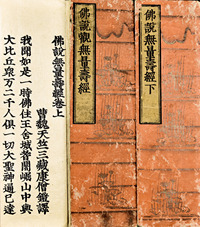 佛說無量壽經下
佛說觀無量壽經
佛說無量壽經卷上
曹魏天竺三藏康僧鎧譯
我聞如是一時佛住王舍城耆闍崛山中與
大比丘衆万二千人俱一切大聖神通已達